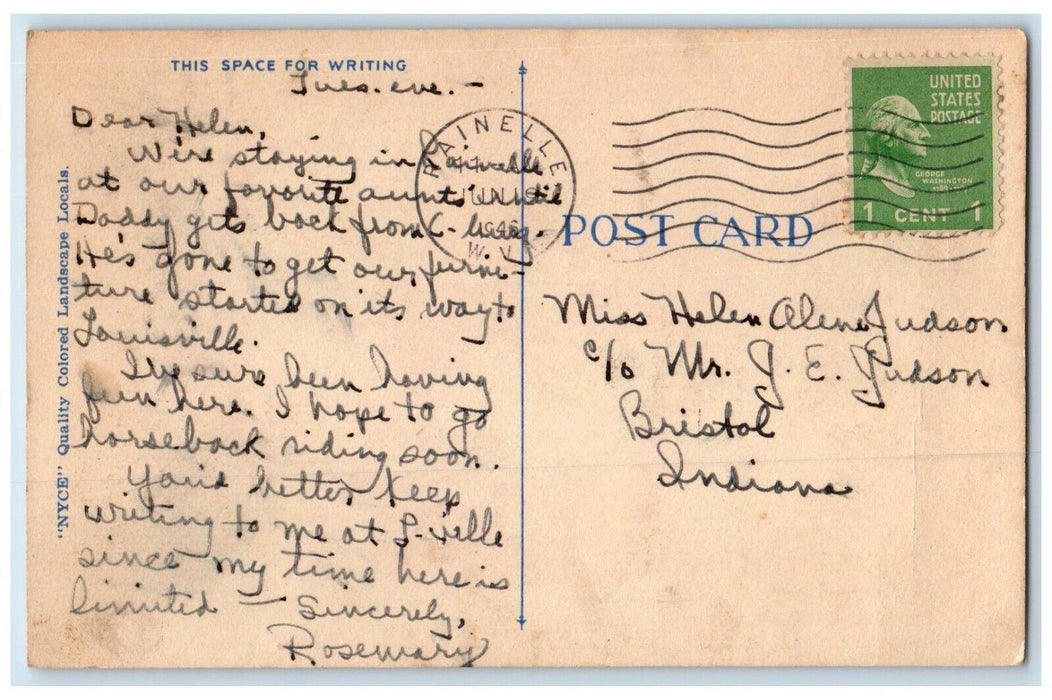 THIS SPACE FOR WRITING
Tues. eve. —
Dear Helen,
We're staying in Rainelle
at our favorite aunt's until
Daddy gets back from C-burg.
He's gone to get our furni-
ture started on its way to
Louisville.
I've sure been having
fun here. I hope to go
horseback riding soon.
You'd better keep
writing to me at L-ville
since my time here is
limited — Sincerely,
Rosemary
"NYCE" Quality Colored Landscape Locals.
RAINELLE
JUN 18
1946
W. VA.
UNITED
STATES
POSTAGE
GEORGE
WASHINGTON
1 CENT 1
POST CARD
Miss Helen Alene Judson
c/o Mr. J. E. Judson
Bristol
Indiana